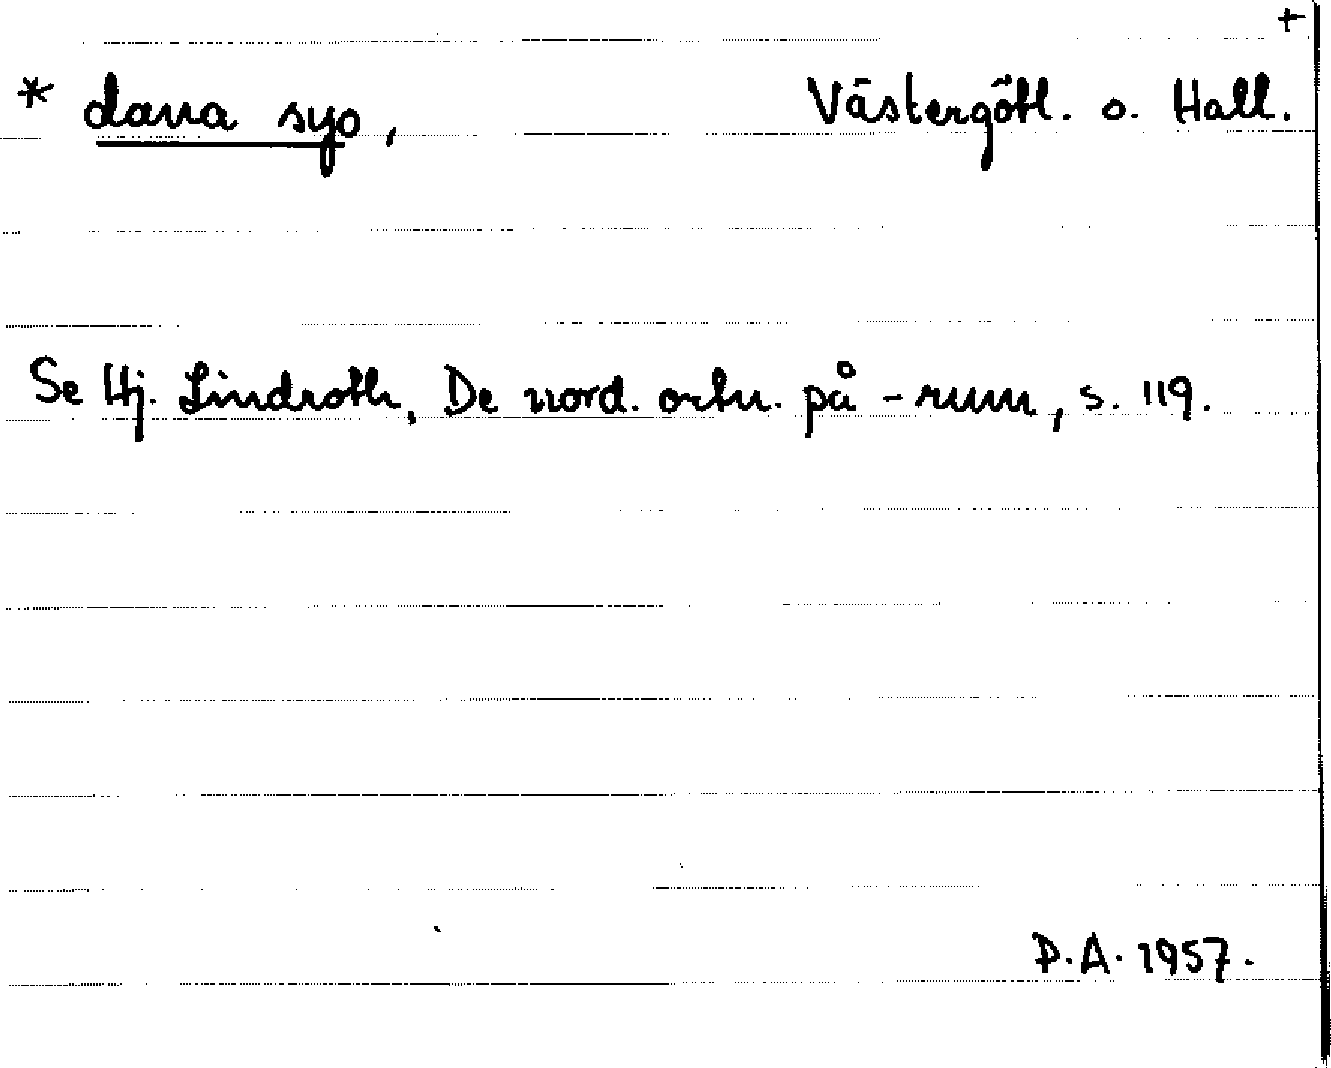 +
* dana syo, Västergötl. o. Hall.
Se Hj. Lindroth, De nord. ortn. på -rum, s. 119.
P.A. 1957.